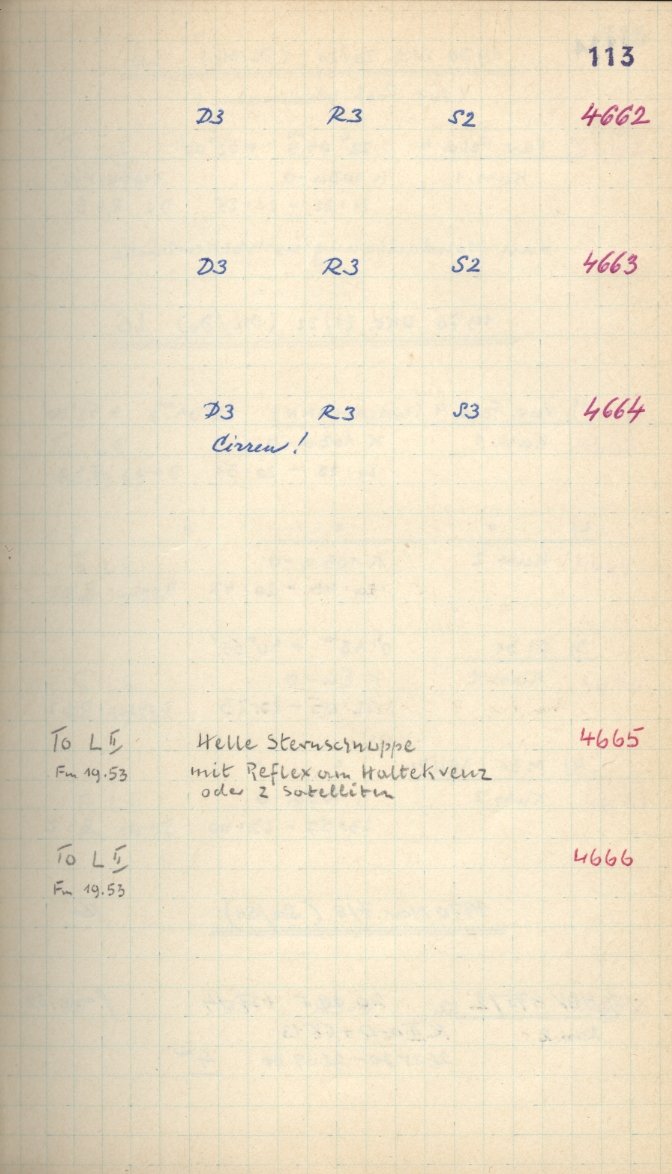 113
D3 R3 S2 4662
D3 R3 S2 4663
D3 R3 S3 4664
Cirren!
To L II Helle Sternschnuppe 4665
Fm 19.53 mit Reflex am Haltekreuz
oder 2 Satelliten
To L II 4666
Fm 19.53